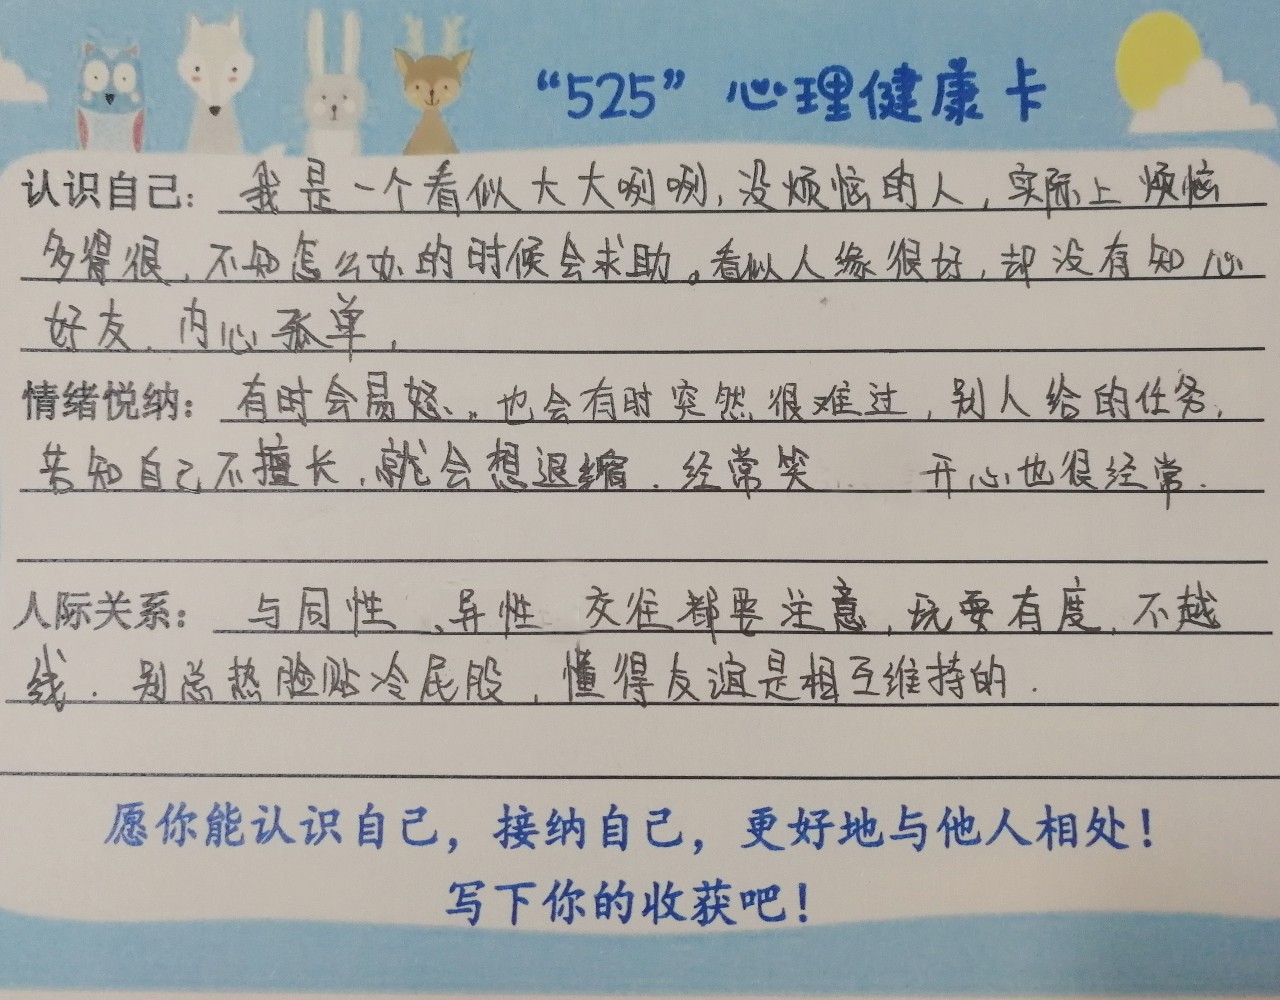 “525”心理健康卡
认识自己：我是一个看似大大咧咧，没烦恼的人，实际上烦恼
多得很，不知怎么办的时候会求助。看似人缘很好，却没有知心
好友，内心孤单，
情绪悦纳：有时会易怒，。也会有时突然很难过，别人给的任务，
告知自己不擅长，就会想退缩．经常笑 开心也很经常．
人际关系：与同性、异性 交往都要注意，玩耍有度，不越
线．别总热脸贴冷屁股，懂得友谊是相互维持的．
愿你能认识自己，接纳自己，更好地与他人相处！
写下你的收获吧！